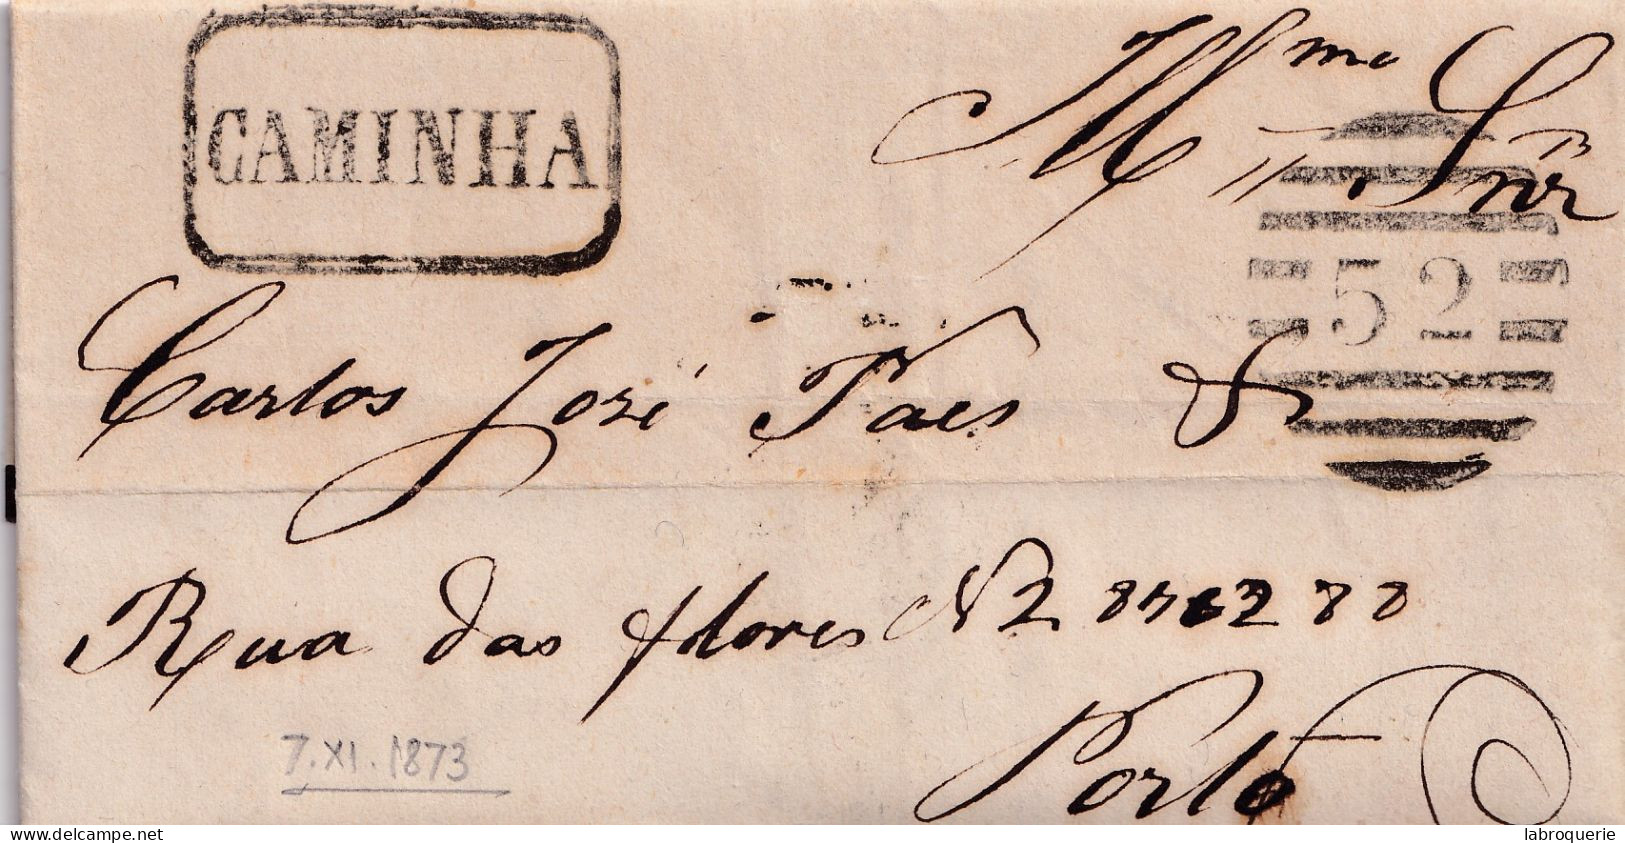 CAMINHA
Illmo Snr
52
Carlos José Paes &
Rua das flores N
Porto
7.XI.1873
delcampe.net
labroquerie